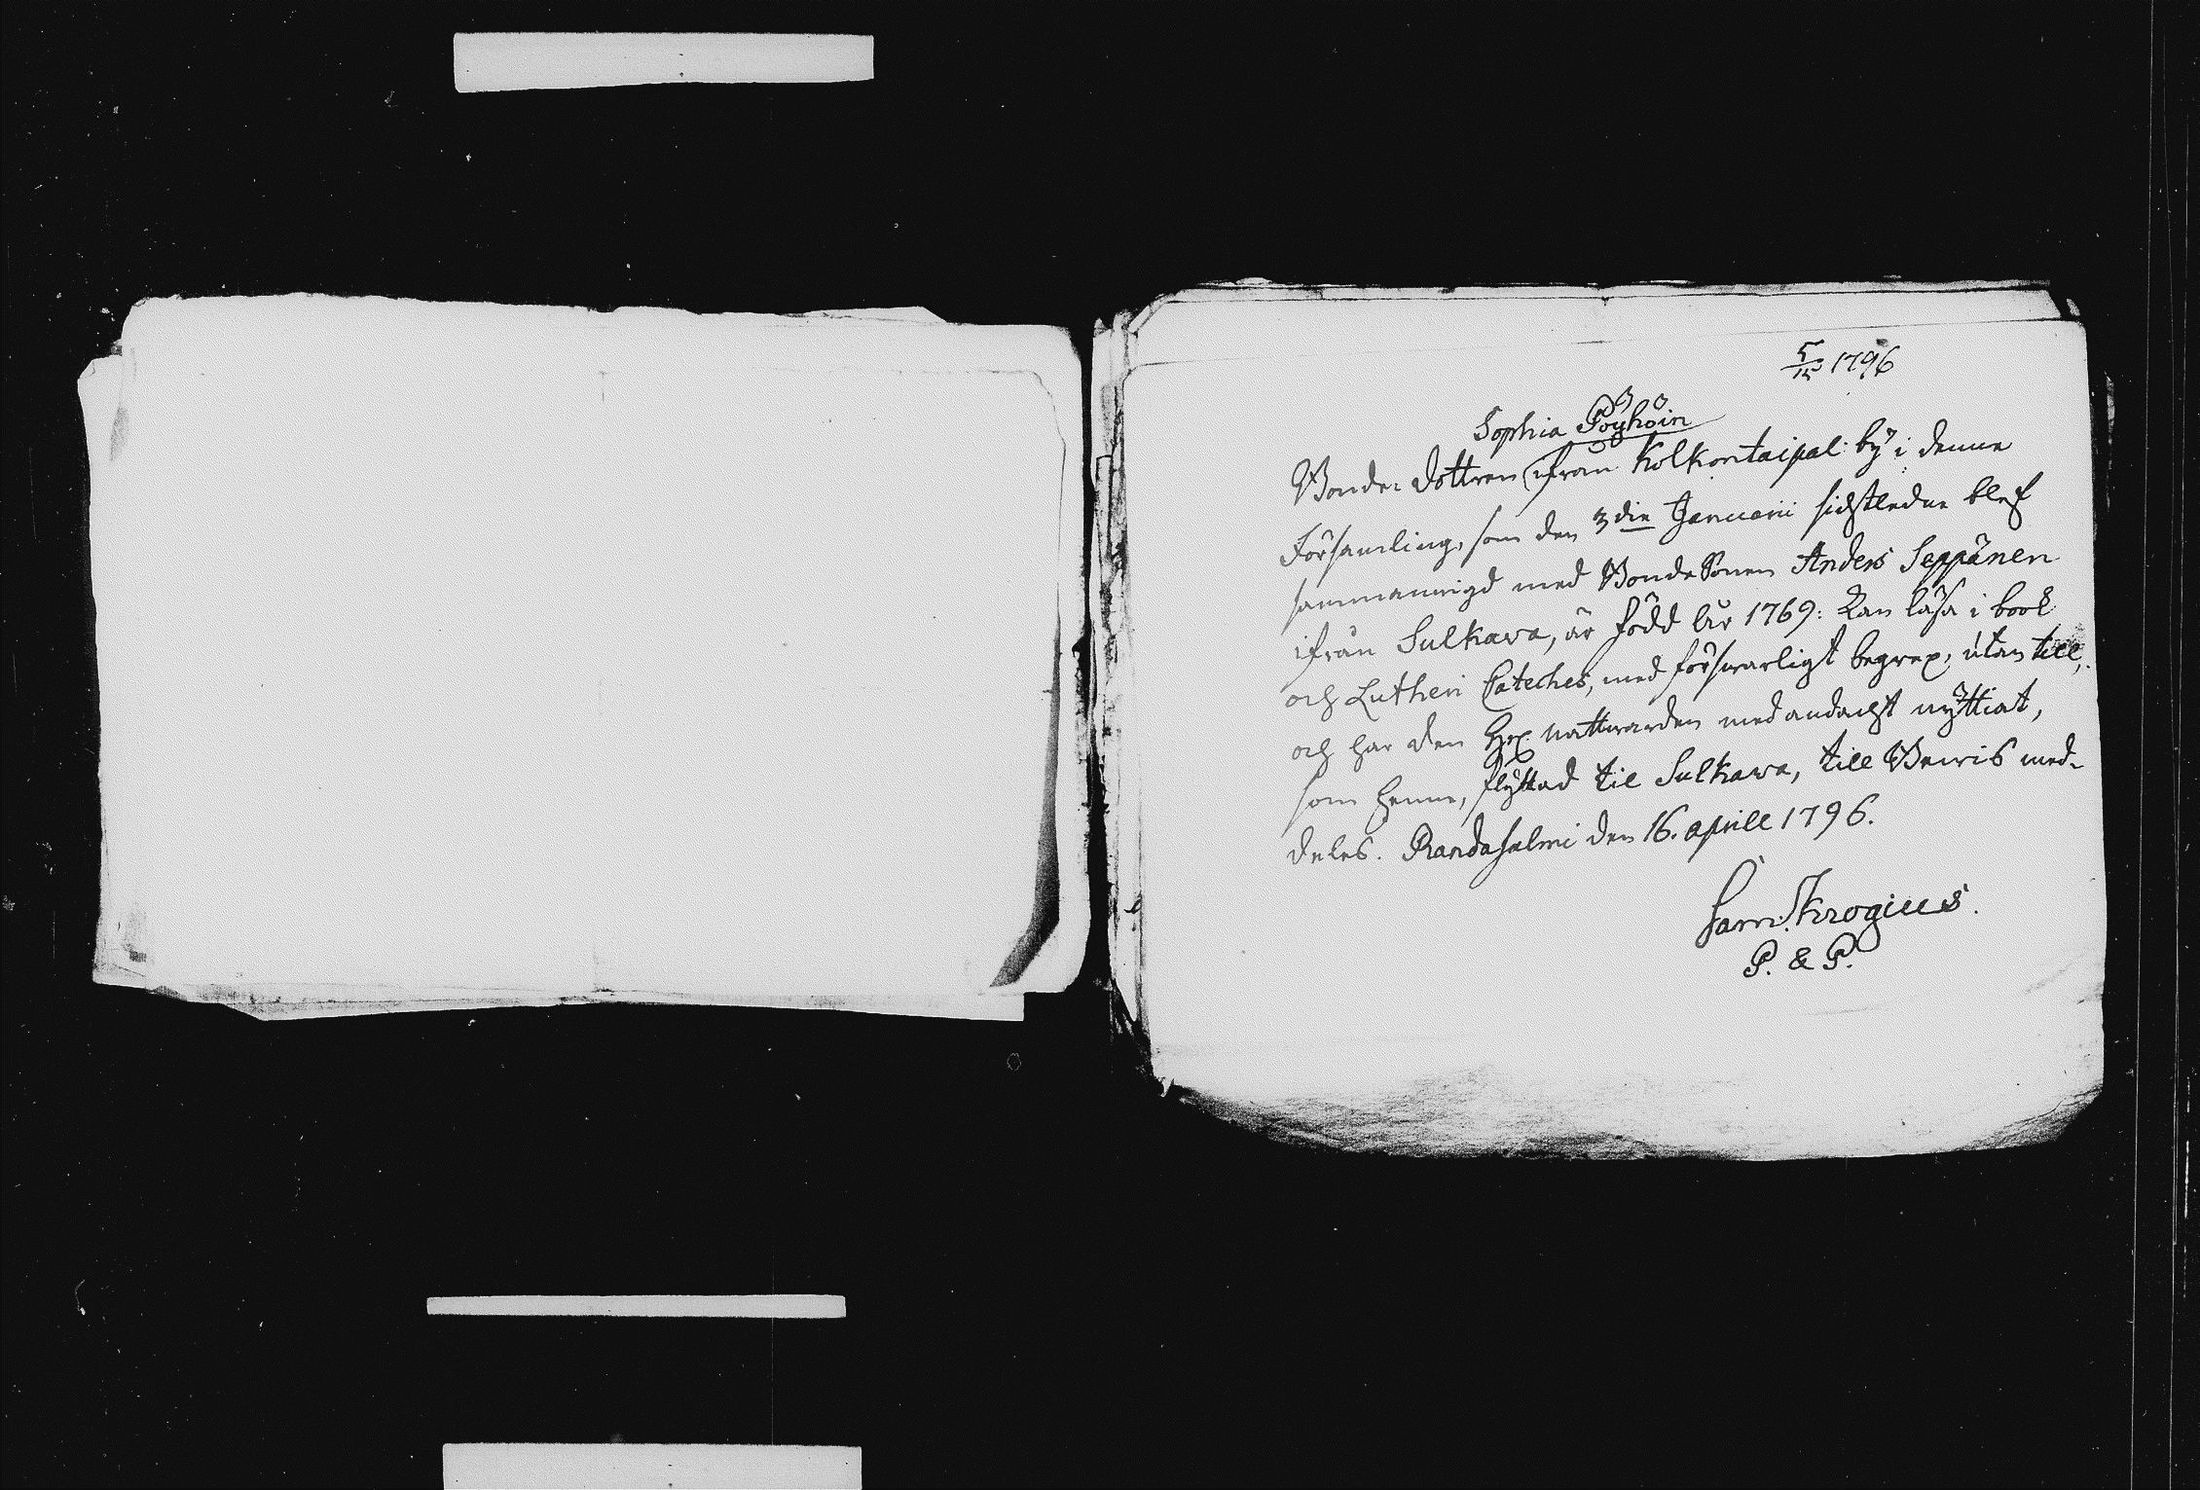 5/15 1796
Sophia Pöyhöin
Bonde-Dottren ifrån Kolkontaipal: by i denne
Församling, som den 3die Januarii sidstledne blef
sammanvigd med BondeSonen Anders Seppänen
ifrån Sulkava, är född åhr 1769: kan läsa i book
och Lutheri Cateches, med försvarligt begrep, utan till,
och har den H. nattwarden med andacht nyttiat,
som henne, flyttad til Sulkava, till Bewis med-
deles. Randasalmi den 16. aprill 1796.
Sam: Krogius.
P. & P.